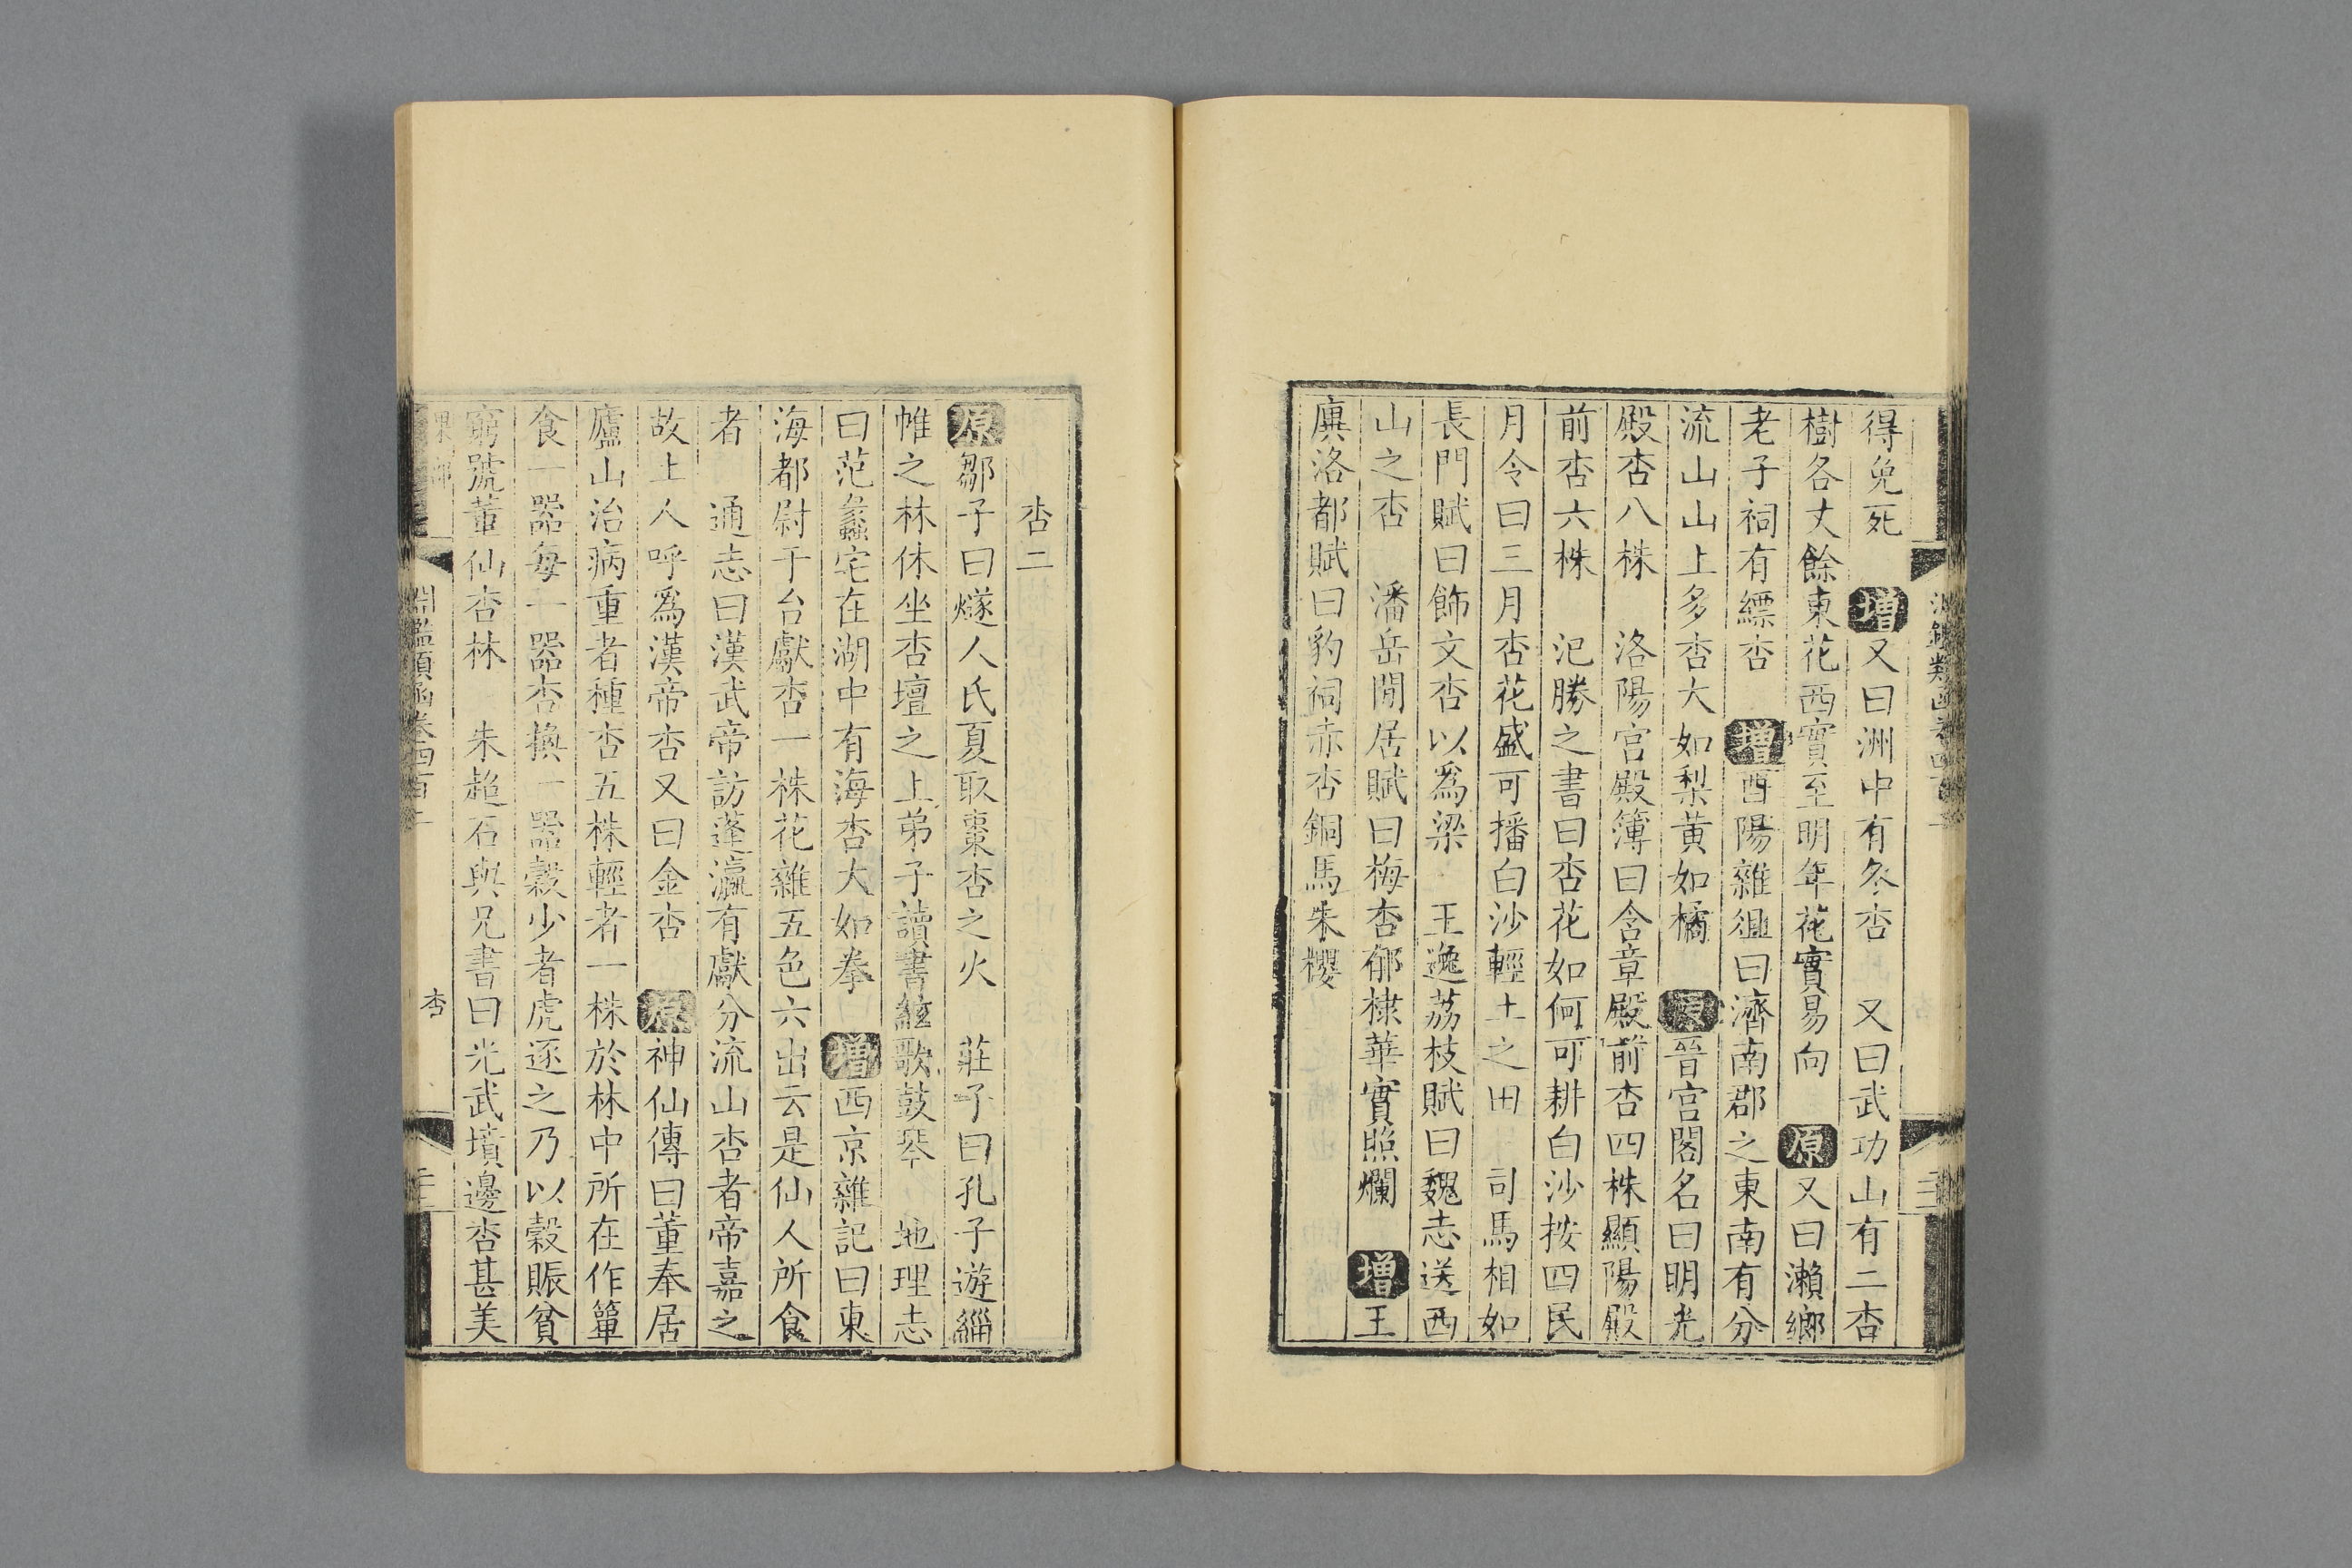 得免死　增又曰洲中有冬杏　又曰武功山有二杏
樹各丈餘東花西實至明年花實易向　原又曰瀨鄉
老子祠有縹杏　增酉陽雜俎曰濟南郡之東南有分
流山山上多杏大如梨黄如橘　原晉宫閣名曰明光
殿杏八株　洛陽宫殿簿曰含章殿前杏四株顯陽殿
前杏六株　氾勝之書曰杏花如何可耕白沙按四民
月令曰三月杏花盛可播白沙輕土之田　司馬相如
長門賦曰飾文杏以爲梁　王逸荔枝賦曰魏志送西
山之杏　潘岳閒居賦曰梅杏郁棣華實照爛　增王
廙洛都賦曰豹祠赤杏銅馬朱櫻
杏二
原鄒子曰燧人氏夏取棗杏之火　莊子曰孔子遊緇
帷之林休坐杏壇之上弟子讀書絃歌鼓琴　地理志
曰范蠡宅在湖中有海杏大如拳　增西京雜記曰東
海都尉于台獻杏一株花雜五色六出云是仙人所食
者　通志曰漢武帝訪蓬瀛有獻分流山杏者帝嘉之
故土人呼爲漢帝杏又曰金杏　原神仙傳曰董奉居
廬山治病重者種杏五株輕者一株於林中所在作簞
食一器每一器杏換一器穀少者虎逐之乃以穀賑貧
窮號董仙杏林　朱超石與兄書曰光武墳邊杏甚美
淵鑑類函卷四百　杏